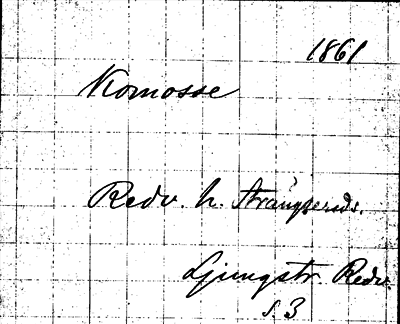 1861
Komosse
Redv. h. Strängserids.
Ljungstr. Redv.
s 3